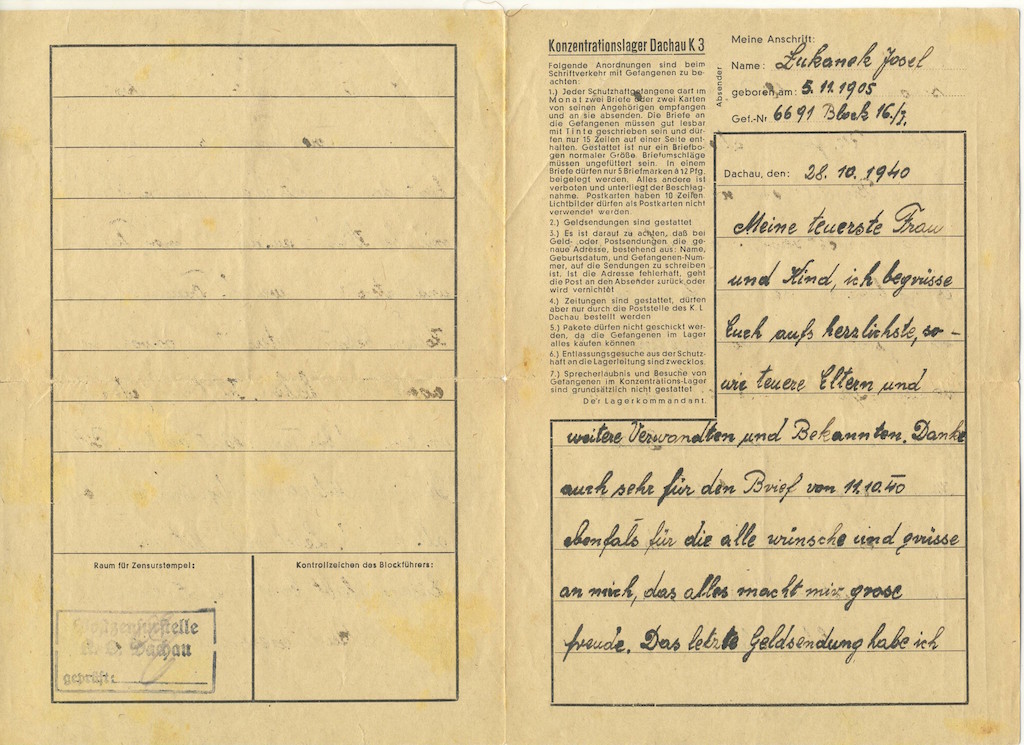 Raum für Zensurstempel:
Kontrollzeichen des Blockführers:
Postzensurstelle
K.L. Dachau
geprüft:
Konzentrationslager Dachau K 3
Folgende Anordnungen sind beim
Schriftverkehr mit Gefangenen zu be-
achten:
1.) Jeder Schutzhaftgefangene darf im
Monat zwei Briefe oder zwei Karten
von seinen Angehörigen empfangen
und an sie absenden. Die Briefe an
die Gefangenen müssen gut lesbar
mit Tinte geschrieben sein und dür-
fen nur 15 Zeilen auf einer Seite ent-
halten. Gestattet ist nur ein Briefbo-
gen normaler Größe. Briefumschläge
müssen ungefüttert sein. In einem
Briefe dürfen nur 5 Briefmarken à 12 Pfg.
beigelegt werden. Alles andere ist
verboten und unterliegt der Beschlag-
nahme. Postkarten haben 10 Zeilen.
Lichtbilder dürfen als Postkarten nicht
verwendet werden.
2.) Geldsendungen sind gestattet
3.) Es ist darauf zu achten, daß bei
Geld- oder Postsendungen die ge-
naue Adresse, bestehend aus: Name,
Geburtsdatum, und Gefangenen-Num-
mer, auf die Sendungen zu schreiben
ist. Ist die Adresse fehlerhaft, geht
die Post an den Absender zurück oder
wird vernichtet
4.) Zeitungen sind gestattet, dürfen
aber nur durch die Poststelle des K. L.
Dachau bestellt werden
5.) Pakete dürfen nicht geschickt wer-
den, da die Gefangenen im Lager
alles kaufen können
6.) Entlassungsgesuche aus der Schutz-
haft an die Lagerleitung sind zwecklos.
7.) Sprecherlaubnis und Besuche von
Gefangenen im Konzentrations-Lager
sind grundsätzlich nicht gestattet
Der Lagerkommandant
Absender
Meine Anschrift:
Name: Lukanek Josef
geboren am: 5.11.1905
Gef.-Nr 6691 Block 16/2.
Dachau, den: 28.10.1940
Meine teuerste Frau
und Kind, ich begrüsse
Euch aufs herzlichste, so-
wie teuere Eltern und
weitere Verwandten und Bekannten. Danke
auch sehr für den Brief von 11.10.40
ebenfals für die alle wünsche und grüsse
an mich, das alles macht mir grose
freude. Das letzte Geldsendung habe ich